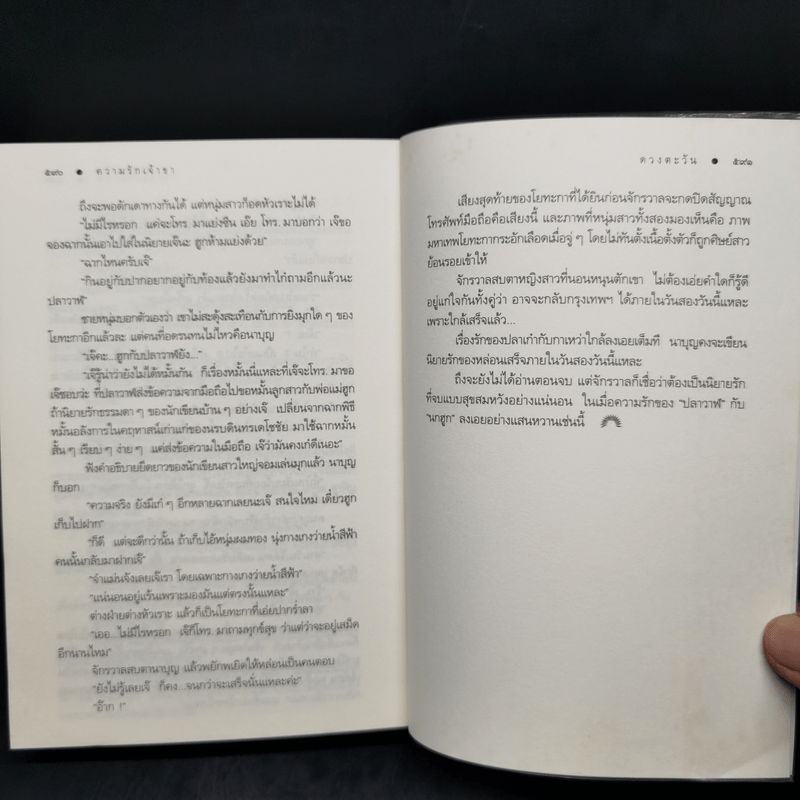 ๕๙๐ ● ความรักเจ้าขา
ถึงจะพอดักเดาทางกันได้ แต่หนุ่มสาวก็อดหัวเราะไม่ได้
“ไม่มีไรหรอก แค่จะโทร. มาแย่งซีน เอ๊ย โทร. มาบอกว่า เจ๊ขอ
จองฉากนั้นเอาไปใส่ในนิยายเจ๊นะ ฮูกห้ามแย่งด้วย”
“ฉากไหนครับเจ๊”
“กินอยู่กับปากอยากอยู่กับท้องแล้วยังมาทำไก๋ถามอีกแล้วนะ
ปลาวาฬ”
ชายหนุ่มบอกตัวเองว่า เขาไม่สะดุ้งสะเทือนกับการยิงมุกใด ๆ ของ
โยทะกาอีกแล้วละ แต่คนที่อดรนทนไม่ไหวคือนาบุญ
“เจ๊คะ...ฮูกกับปลาวาฬยัง...”
“เจ๊รู้น่าว่ายังไม่ได้หมั้นกัน ก็เรื่องหมั้นนี่แหละที่เจ๊จะโทร. มาขอ
เจ๊ชอบว่ะ ที่ปลาวาฬส่งข้อความจากมือถือไปขอหมั้นลูกสาวกับพ่อแม่ฮูก
ถ้านิยายรักธรรมดา ๆ ของนักเขียนบ้าน ๆ อย่างเจ๊ เปลี่ยนจากฉากพิธี
หมั้นอลังการในคฤหาสน์เก่าแก่ของนรบดินทรเดโชชัย มาใช้ฉากหมั้น
สั้น ๆ เรียบ ๆ ง่าย ๆ แค่ส่งข้อความในมือถือ เจ๊ว่ามันคงเก๋ดีเนอะ”
ฟังคำอธิบายยืดยาวของนักเขียนสาวใหญ่จอมเล่นมุกแล้ว นาบุญ
ก็บอก
“ความจริง ยังมีเก๋ ๆ อีกหลายฉากเลยนะเจ๊ สนใจไหม เดี๋ยวฮูก
เก็บไปฝาก”
“ก็ดี แต่จะดีกว่านั้น ถ้าเก็บไอ้หนุ่มผมทอง นุ่งกางเกงว่ายน้ำสีฟ้า
คนนั้นกลับมาฝากเจ๊”
“จำแม่นจังเลยเจ๊เรา โดยเฉพาะกางเกงว่ายน้ำสีฟ้า”
“แน่นอนอยู่แร้นเพราะมองมันแต่ตรงนั้นแหละ”
ต่างฝ่ายต่างหัวเราะ แล้วก็เป็นโยทะกาที่เอ่ยปากร่ำลา
“เออ...ไม่มีไรหรอก เจ๊ก็โทร. มาถามทุกข์สุข ว่าแต่ว่าจะอยู่เสม็ด
อีกนานไหม”
จักรวาลสบตานาบุญ แล้วพยักพเยิดให้หล่อนเป็นคนตอบ
“ยังไม่รู้เลยเจ๊ ก็คง...จนกว่าจะเสร็จนั่นแหละค่ะ”
“อ๊าก !”
ดวงตะวัน ● ๕๙๑
เสียงสุดท้ายของโยทะกาที่ได้ยินก่อนจักรวาลจะกดปิดสัญญาณ
โทรศัพท์มือถือคือเสียงนี้ และภาพที่หนุ่มสาวทั้งสองมองเห็นคือ ภาพ
มหาเทพโยทะกากระอักเลือดเมื่อจู่ ๆ โดยไม่ทันตั้งเนื้อตั้งตัวก็ถูกศิษย์สาว
ย้อนรอยเข้าให้
จักรวาลสบตาหญิงสาวที่นอนหนุนตักเขา ไม่ต้องเอ่ยคำใดก็รู้ดี
อยู่แก่ใจกันทั้งคู่ว่า อาจจะกลับกรุงเทพฯ ได้ภายในวันสองวันนี้แหละ
เพราะใกล้เสร็จแล้ว...
เรื่องรักของปลาเก๋ากับกาเหว่าใกล้ลงเอยเต็มที นาบุญคงจะเขียน
นิยายรักของหล่อนเสร็จภายในวันสองวันนี้แหละ
ถึงจะยังไม่ได้อ่านตอนจบ แต่จักรวาลก็เชื่อว่าต้องเป็นนิยายรัก
ที่จบแบบสุขสมหวังอย่างแน่นอน ในเมื่อความรักของ “ปลาวาฬ” กับ
“นกฮูก” ลงเอยอย่างแสนหวานเช่นนี้